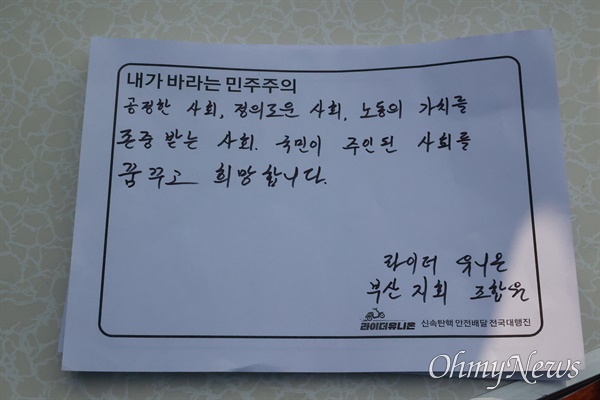 내가 바라는 민주주의
공정한 사회, 정의로운 사회, 노동의 가치를
존중 받는 사회. 국민이 주인된 사회를
꿈꾸고 희망합니다.
라이더 유니온
부산 지회 조합원
라이더유니온 신속탄핵 안전배달 전국대행진
OhmyNews